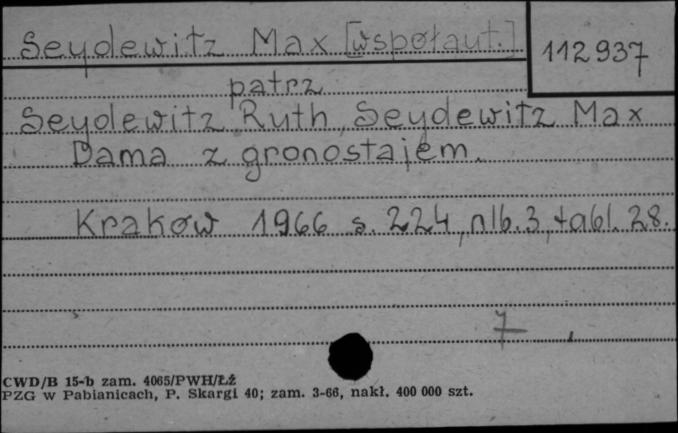 Seydewitz Max [współaut.]
112937
patrz
Seydewitz Ruth, Seydewitz Max
Dama z gronostajem.
Kraków 1966 s. 224, nlb. 3, tabl. 28.
7
CWD/B 15-b zam. 4065/PWH/ŁŻ
PZG w Pabianicach, P. Skargi 40; zam. 3-66, nakł. 400 000 szt.